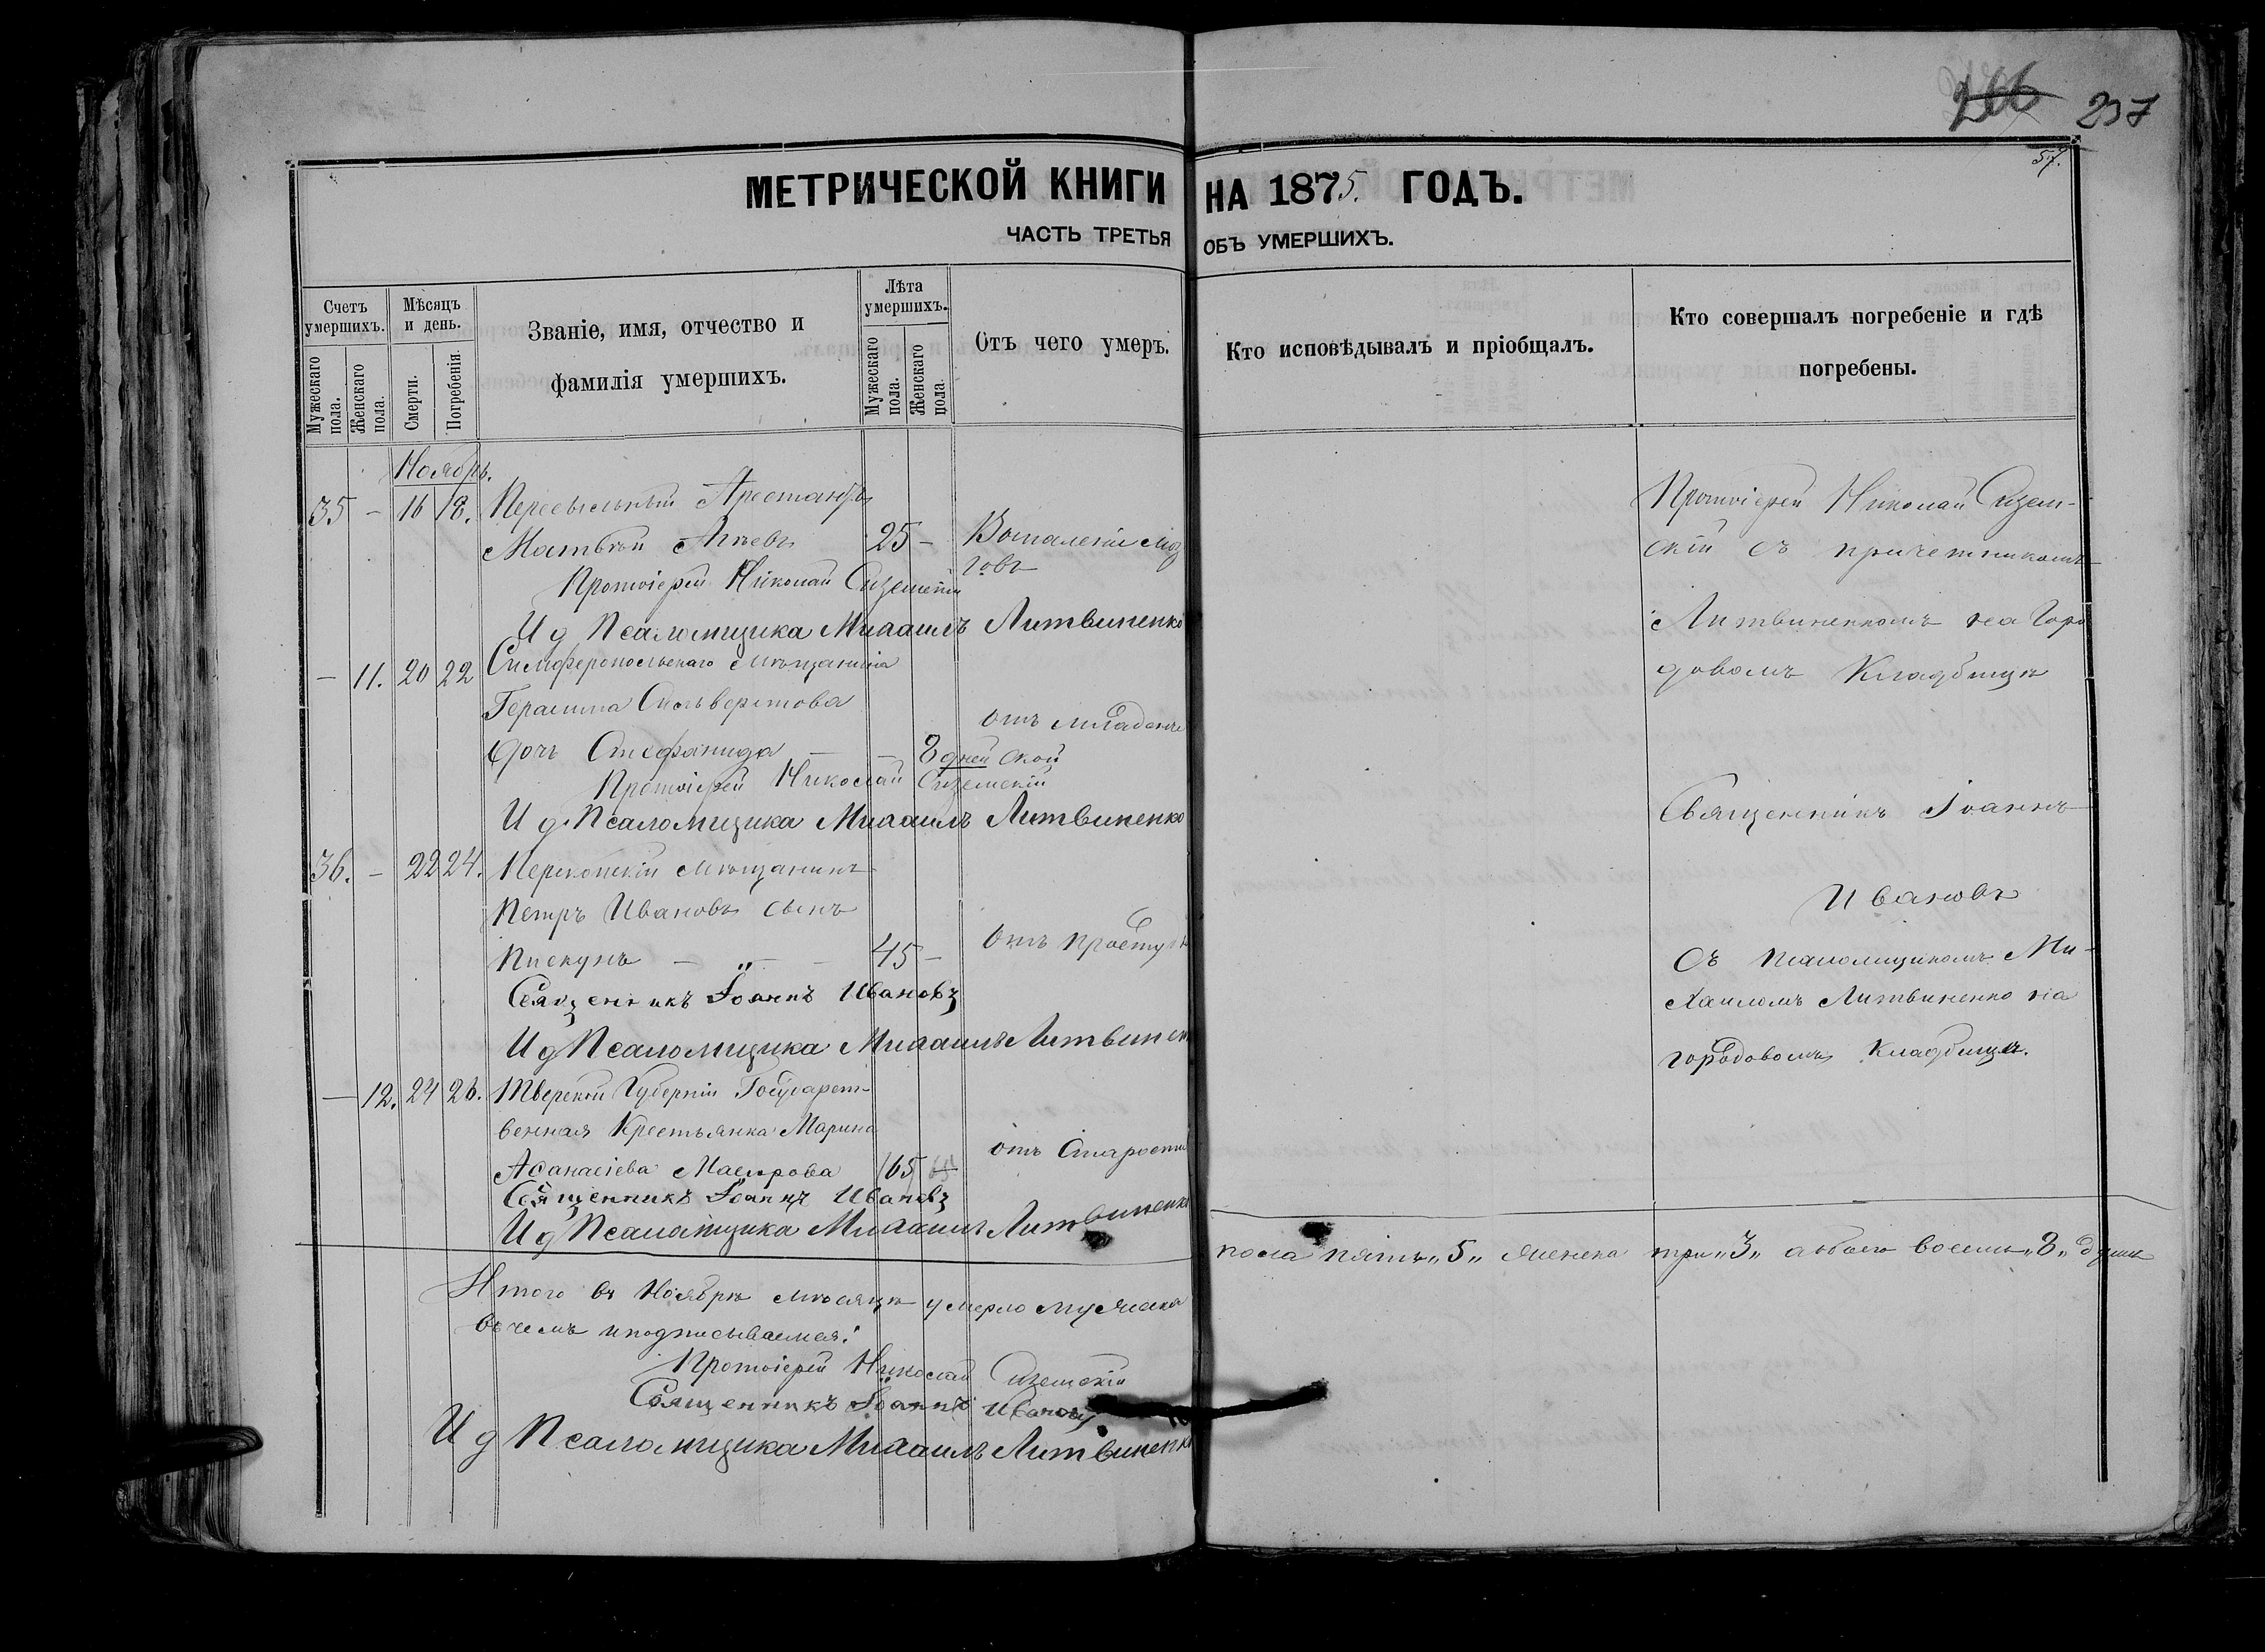 266 237
57.
МЕТРИЧЕСКОЙ КНИГИ НА 1875. ГОДЪ.
ЧАСТЬ ТРЕТЬЯ ОБЪ УМЕРШИХЪ.
Счетъ умершихъ.
Мужескаго пола.
Женскаго пола.
Мѣсяцъ и день.
Смерти.
Погребенія.
Званіе, имя, отчество и
фамилія умершихъ.
Лѣта умершихъ.
Мужескаго пола.
Женскаго пола.
Отъ чего умеръ.
Кто исповѣдывалъ и пріобщалъ.
Кто совершалъ погребеніе и гдѣ
погребены.
Ноябрь.
35 – 16 18. Пересыльный Арестантъ
Матвѣй 25 – Воспаленіе моз
говъ
Протоіерей Николай Сиземскій
И д Псаломщика Михаилъ Литвиненко
– 11. 20 22 Симферопольскаго мѣщанина
Герасима
дочь Стефанида – – 8 дней отъ младенче
ской
Протоіерей Николай Сиземскій
И д Псаломщика Михаилъ Литвиненко
36. – 22 24. Перекопскій мѣщанинъ
Петръ Ивановъ сынъ
Пискунъ – „ – 45 – отъ простуды
Священникъ Іоаннъ Ивановъ
И д Псаломщика Михаилъ Литвинен
– 12. 24 26. Тверской Губерніи Государст-
венная Крестьянка Марина
Аѳанасіева 65 65 отъ Старости
Священникъ Іоаннъ Ивановъ
И д Псаломщика Михаилъ Литвиненко
Протоіерей Николай Сизем-
скій съ причетникомъ
Литвиненкомъ на Горо
довомъ Кладбищѣ
Священникъ Іоаннъ
Ивановъ
съ псаломщикомъ Ми-
хаиломъ Литвиненко на
городовомъ Кладбищѣ.
Итого въ Ноябрѣ мѣсяцѣ умерло мужеска пола пять „5„ женска три „3„ а обоего восемь „8„ душъ
въ чемъ и подписываемся:
Протоіерей Николай Сиземскій
Священникъ Іоаннъ Ивановъ.
И д Псаломщика Михаилъ Литвиненко